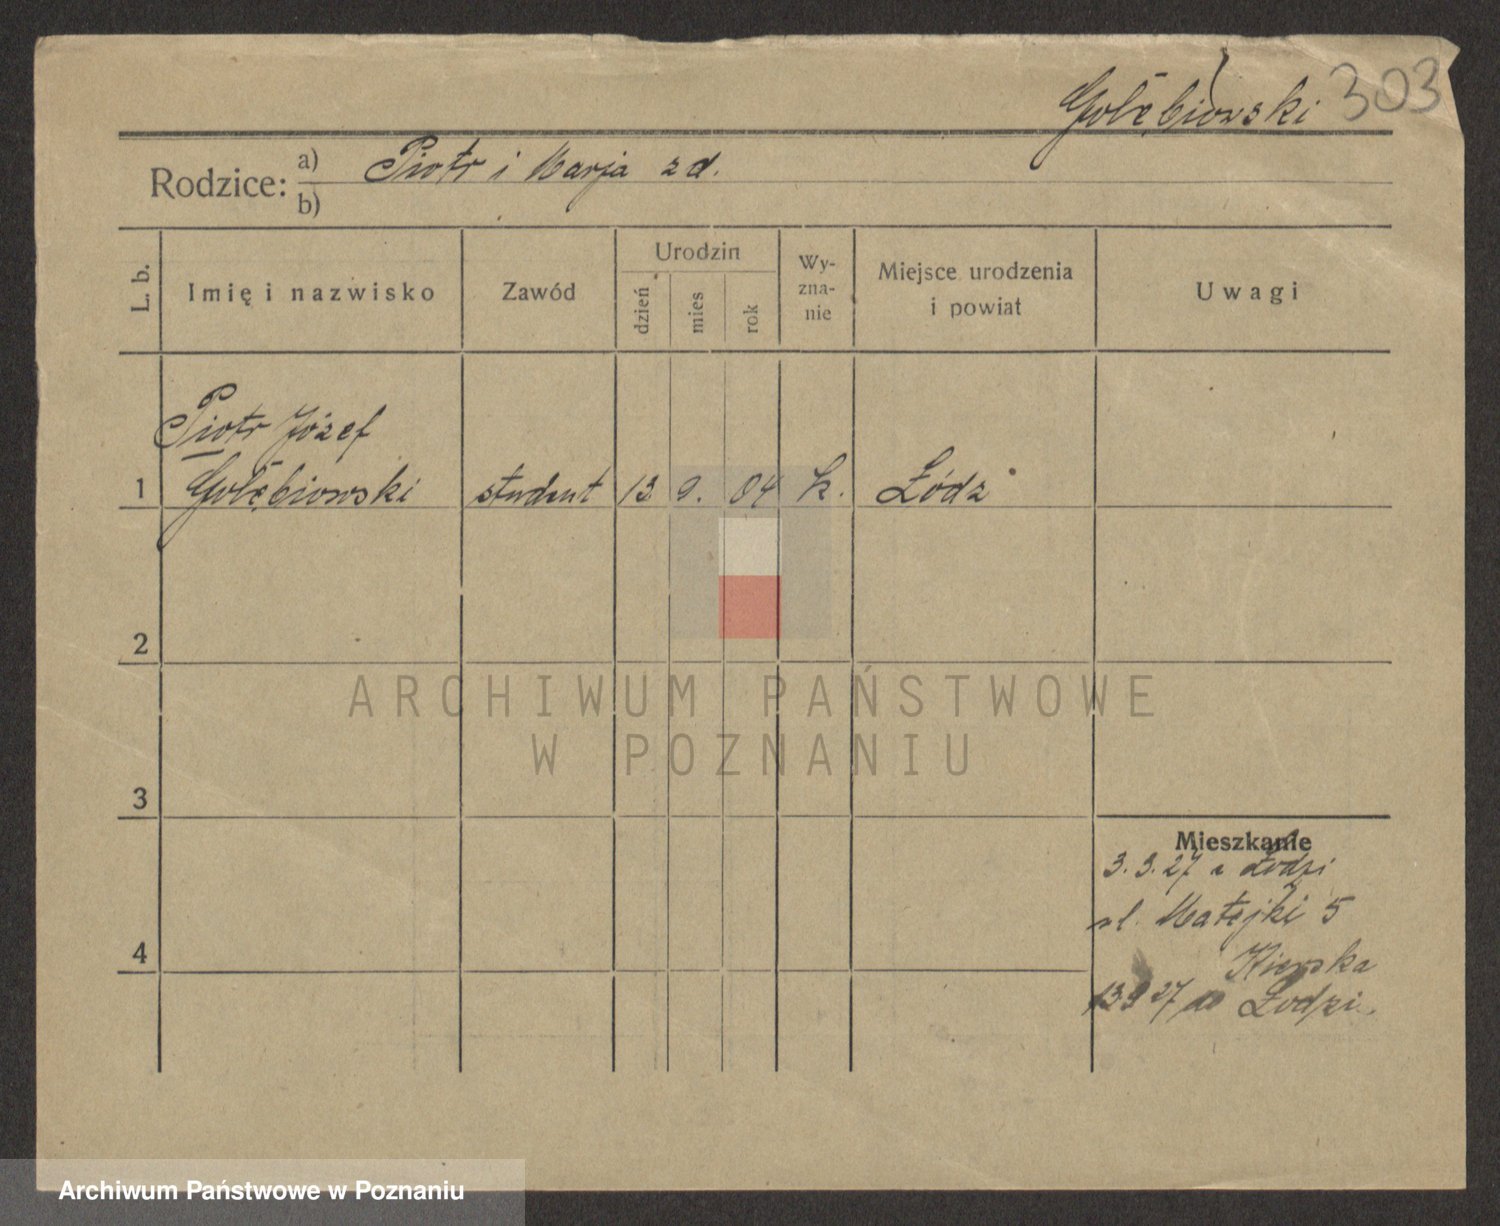 Gołębiowski 303
Rodzice: a) Piotr i Marja zd.
b)
L. b. Imię i nazwisko Zawód Urodzin dzień mies rok Wyznanie Miejsce urodzenia i powiat Uwagi
Piotr Józef
1 Gołębiowski student 13 9. 04 k. Łódź
2
ARCHIWUM PAŃSTWOWE
W POZNANIU
3
Mieszkanie
3. 3. 27 z Łodzi
ul. Matejki 5
4
27 do Łodzi.
Archiwum Państwowe w Poznaniu